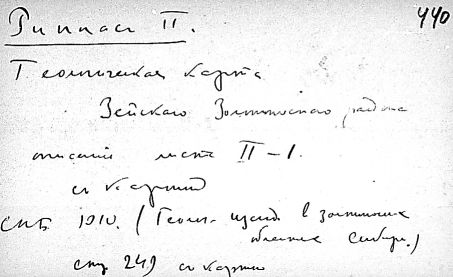 440
Риппас П.
Геологическая карта
Зейскаго Золотоноснаго района
описание листа II-1.
съ картой
СПБ 1910. (Геол. изслед в золотоносн
областях Сибири.)
стр 249 съ карти